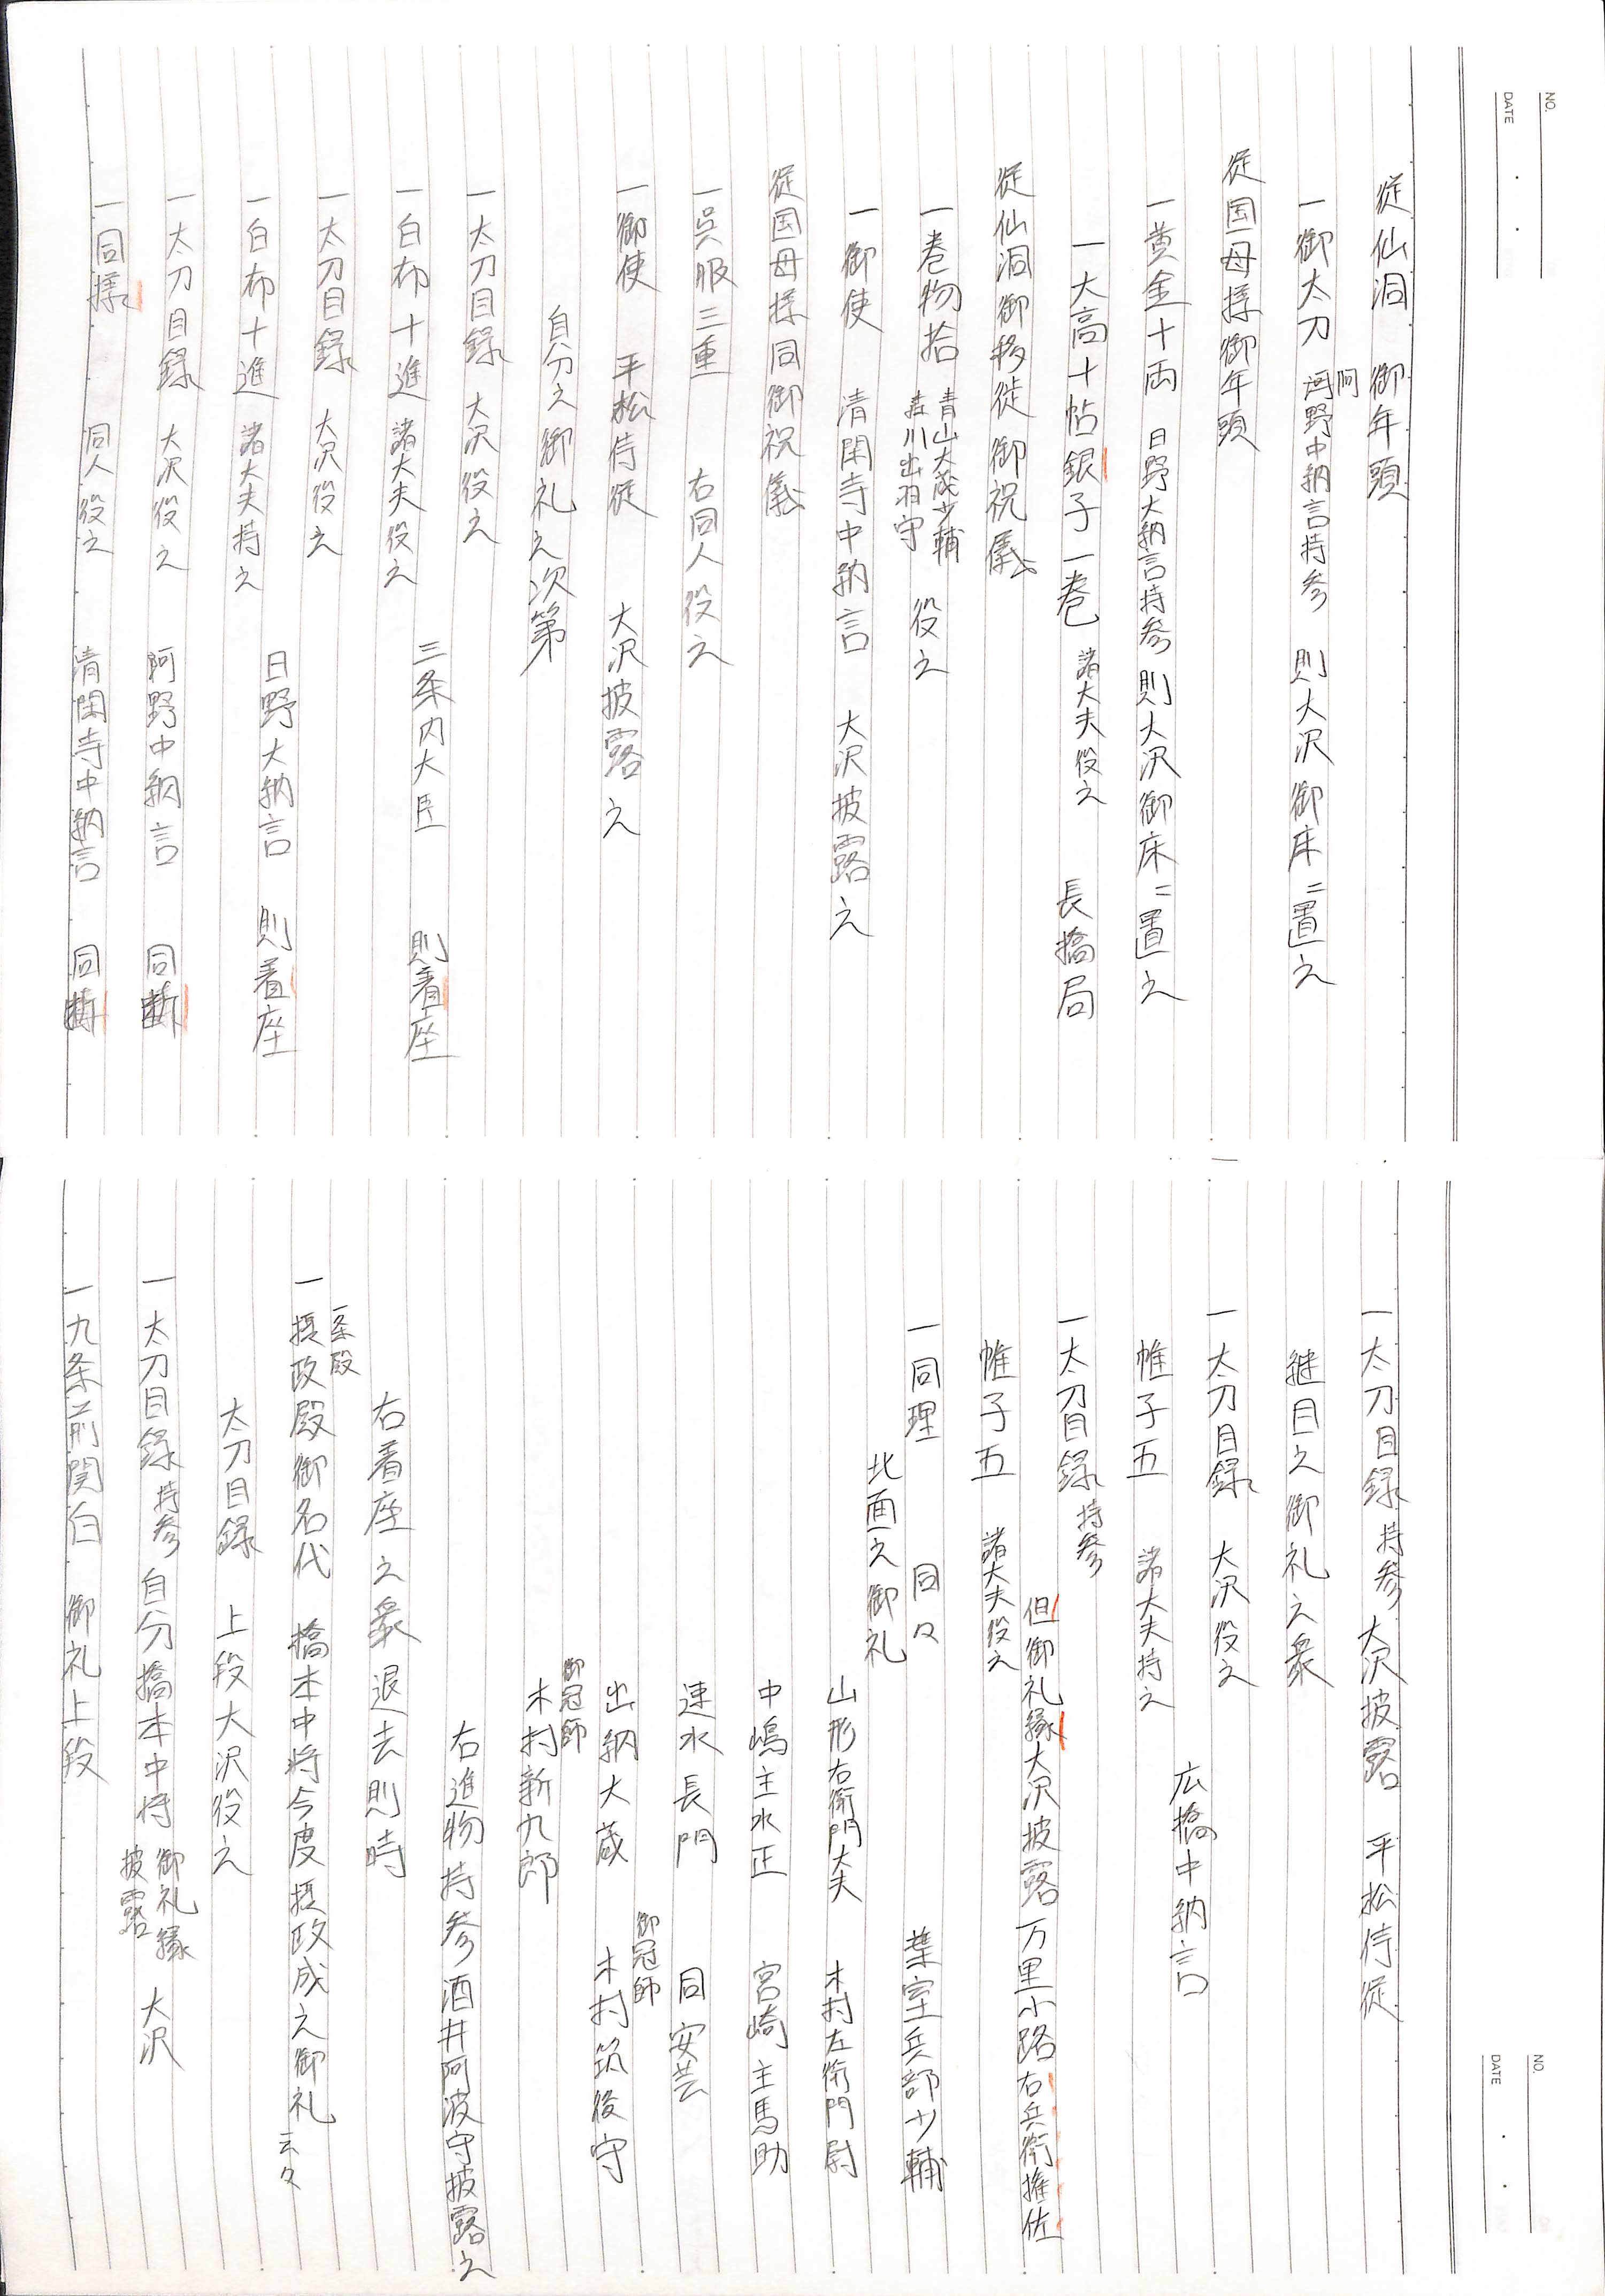 NO.
DATE
従仙洞 御年頭
一御太刀 河野中納言持参 則大沢御床ニ置之
阿
従国母様御年頭
一黄金十両 日野大納言持参 則大沢御床ニ置之
一大高十帖銀子一巻 諸大夫役之 長橋局
従仙洞御移徙御祝儀
一巻物拾 青山大蔵少輔 吉川出羽守 役之
一御使 清閑寺中納言 大沢披露之
従国母様同御祝儀
一呉服三重 右同人役之
一御使 平松侍従 大沢披露之
自分之御礼之次第
一太刀目録 大沢役之
一白布十進 諸大夫役之 三条内大臣 則着座
一太刀目録 大沢役之
一白布十進 諸大夫持之 日野大納言 則着座
一太刀目録 大沢役之 阿野中納言 同断
一同様 同人役之 清閑寺中納言 同断
NO.
DATE
一太刀目録持参 大沢披露 平松侍従
継目之御礼之衆
一太刀目録 大沢役之
広橋中納言
帷子五 諸大夫持之
一太刀目録持参
但御礼縁大沢披露 万里小路右兵衛権佐
帷子五 諸大夫役之
一同理 同々 葉室兵部少輔
北面之御礼
山形右衛門大夫 木村左衛門尉
中嶋主水正 宮崎主馬助
速水長門 同安芸
出納大蔵 御冠師 木村筑後守
御冠師
木村新九郎
右進物持参酒井阿波守披露之
右着座之衆退去則時
一条殿
一摂政殿御名代 橋本中将今度摂政成之御礼云々
太刀目録 上段大沢役之
一太刀目録持参 自分橋本中将 御礼縁 大沢
披露
一九条前関白 御礼上段